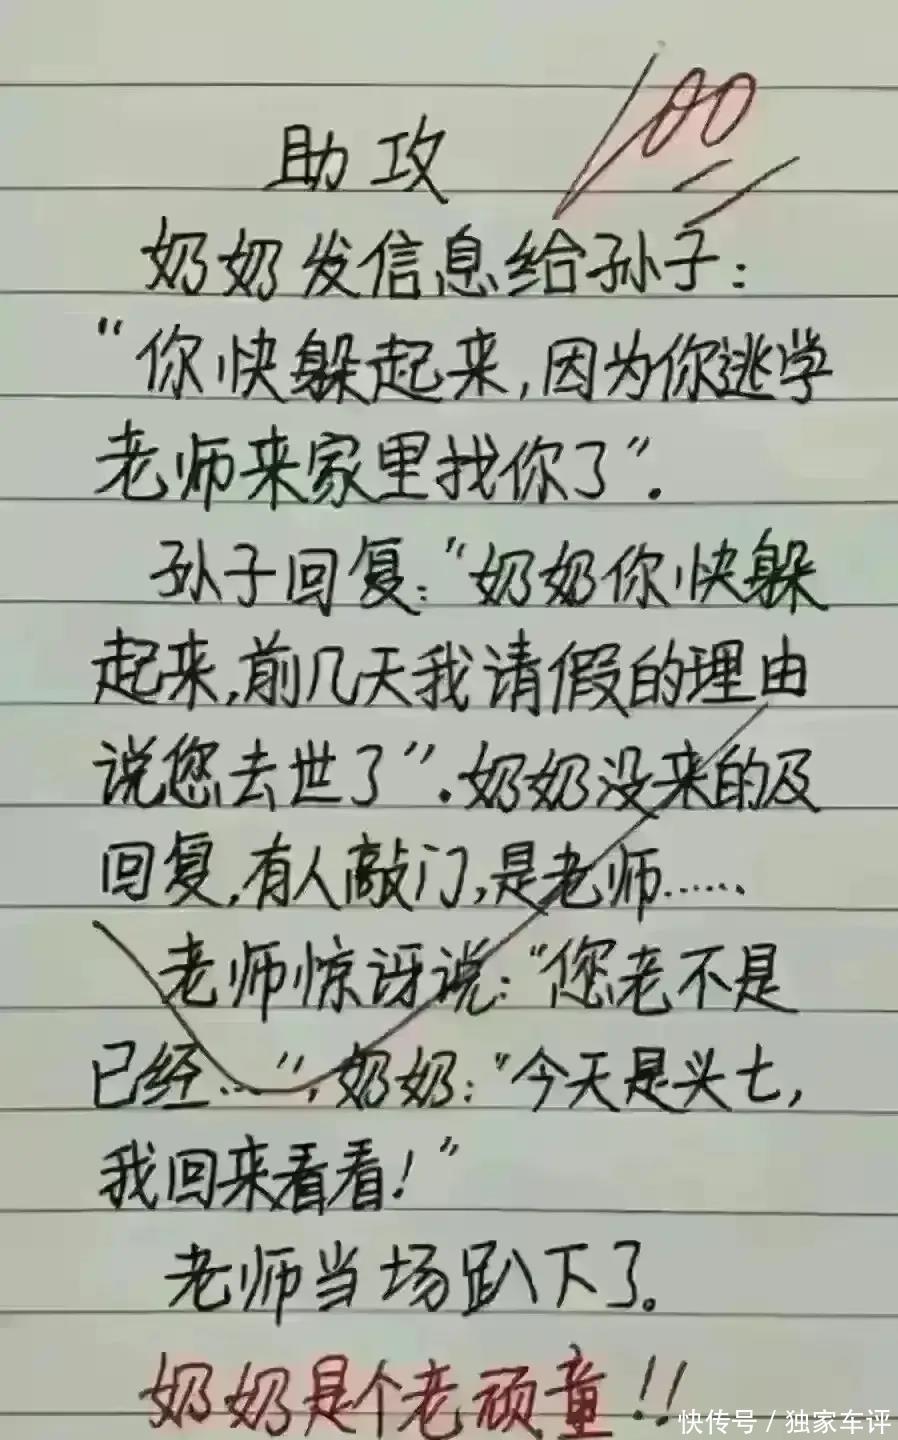 100
助攻
奶奶发信息给孙子：
“你快躲起来,因为你逃学
老师来家里找你了”.
孙子回复:“奶奶你快躲
起来,前几天我请假的理由
说您去世了”.奶奶没来的及
回复,有人敲门,是老师……
老师惊讶说:“您老不是
已经…”,奶奶:“今天是头七,
我回来看看!”
老师当场趴下了。
奶奶是个老顽童!!
快传号 / 独家车评